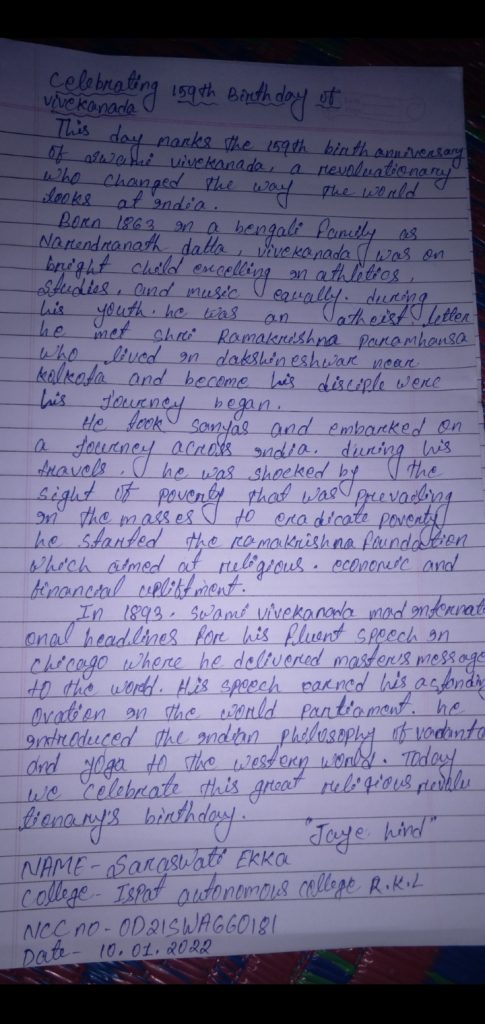 Celebrating 159th Birthday of
vivekanada
This day marks the 159th birth anniversary
of swami vivekanada, a revoluationary
who changed the way the world
looks at india.
Born 1863 in a bengali family as
Narendranath datta, vivekanada was on
bright child excelling in athletics,
studies, and music equally. during
his youth. he was an atheist. letter
he met shri Ramakrishna paramhansa
who lived in dakshineshwar near
kolkata and become his disciple were
his journey began.
He took sanyas and embarked on
a journey across india. during his
travels. he was shocked by the
sight of poverty that was prevailing
in the masses to eradicate poverty
he started the ramakrishna foundation
which aimed at religious. economic and
financial upliftment.
In 1893. Swami vivekanada mad internat
onal headlines for his fluent speech in
chicago where he delivered master's message
to the world. His speech earned his a standing
ovation in the world Parliament. he
introduced the indian philosophy of vadanta
and yoga to the western world. Today
we celebrate this great religious revolu
tionary's birthday.
"Jaye hind"
NAME - Saraswati EKKA
College - Ispat autonomous college R.K.L
NCC no - OD21SWA660181
Date - 10.01.2022